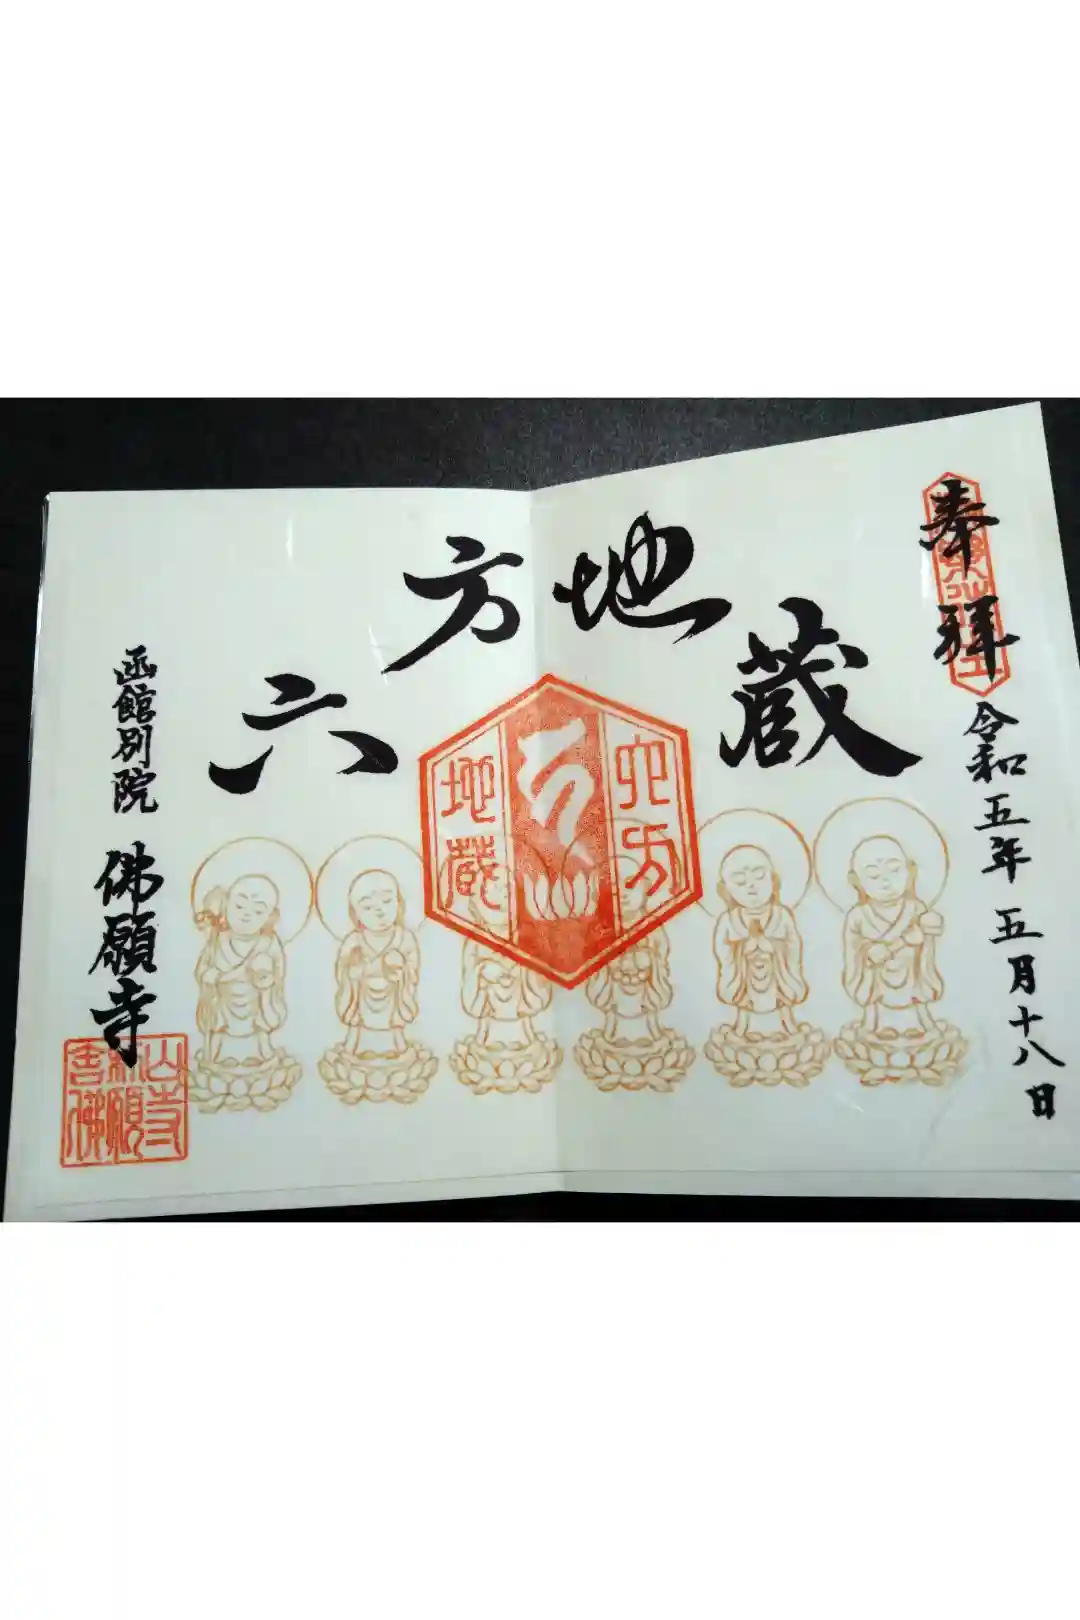 奉拝
令和五年 五月十八日
六方地蔵
六方
地蔵
函館別院 佛願寺